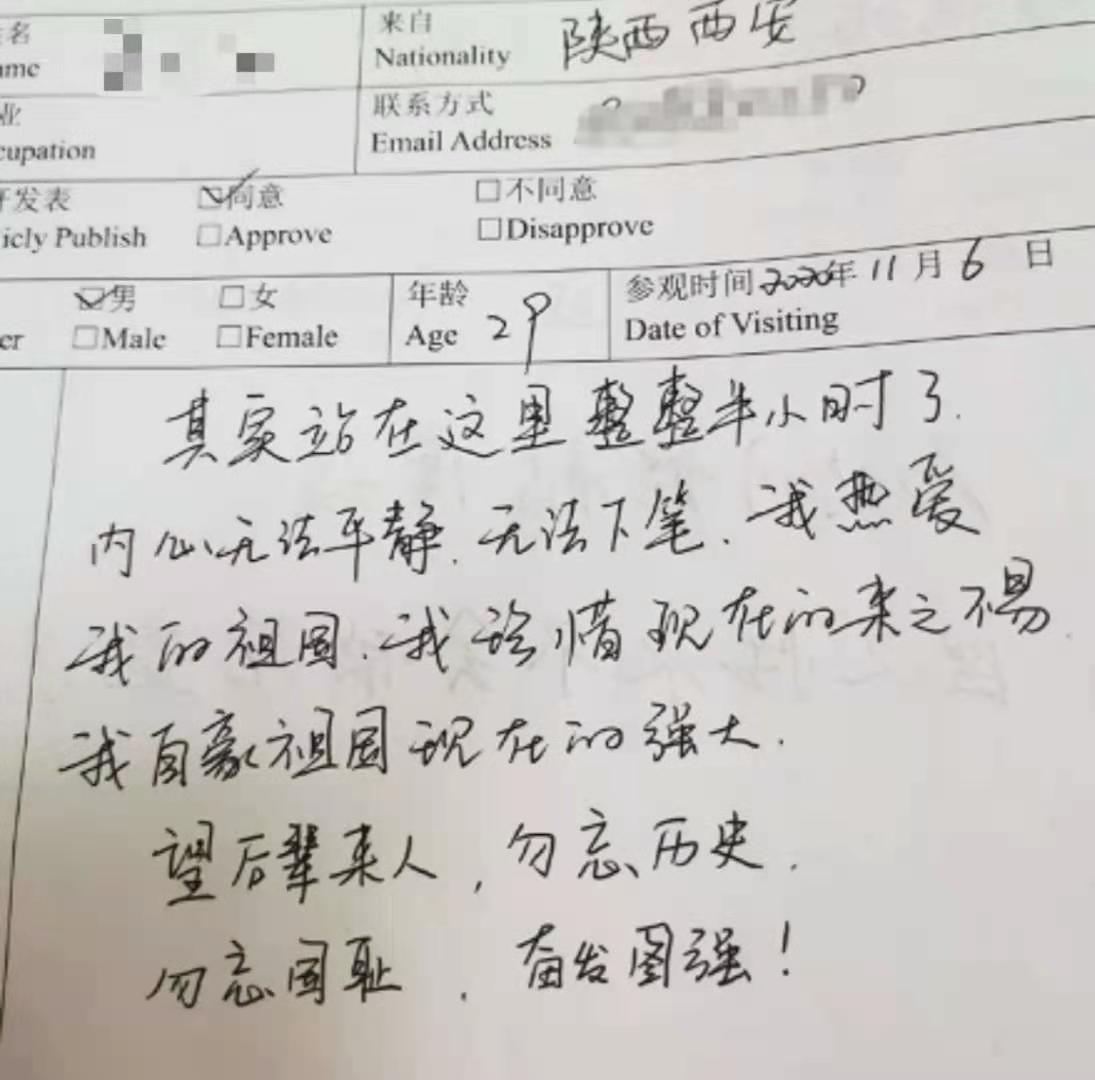 名 来自 陕西西安
me Nationality
业 联系方式
cupation Email Address
开发表 同意 不同意
icly Publish Approve Disapprove
男 女 年龄 29 参观时间 2020年 11月 6日
er Male Female Age Date of Visiting
其实站在这里整整半小时了.
内心无法平静.无法下笔.我热爱
我的祖国.我珍惜现在的来之不易.
我自豪祖国现在的强大.
望后辈来人,勿忘历史.
勿忘国耻.奋发图强!